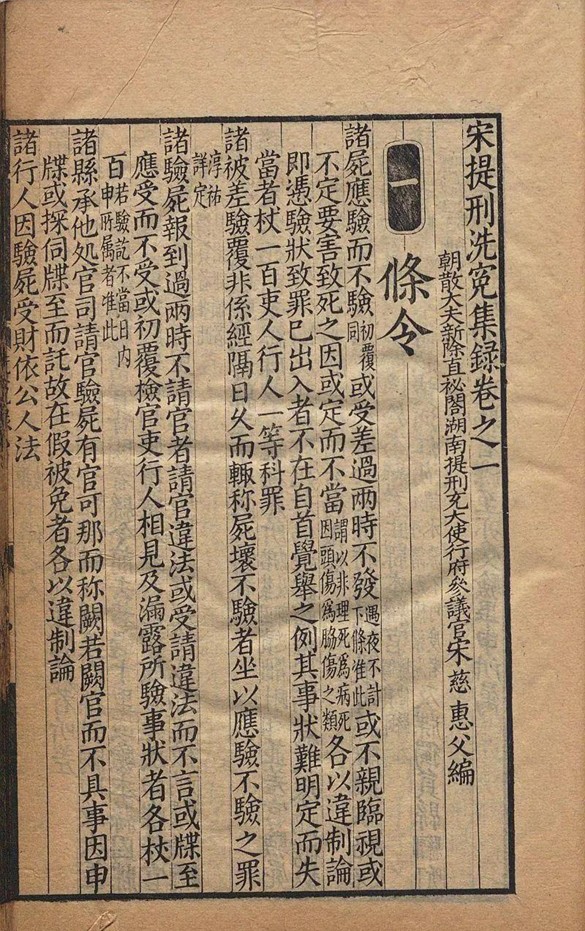 宋提刑洗冤集録卷之一
朝散大夫新除直祕閣湖南提刑充大使行府參議官宋慈惠父編
一
條令
諸屍應驗而不驗初覆同或受差過兩時不發遇夜不計下條准此或不親臨視或
不定要害致死之因或定而不當謂以非理死爲病死因頭傷爲脇傷之類各以違制論
即憑驗狀致罪已出入者不在自首覺舉之例其事狀難明定而失
當者杖一百吏人行人一等科罪
諸被差驗覆非係經隔日久而輙称屍壞不驗者坐以應驗不驗之罪
淳祐詳定
諸驗屍報到過兩時不請官者請官違法或受請違法而不言或牒至
應受而不受或初覆檢官吏行人相見及漏露所驗事狀者各杖一
百若驗訖不當日内申所属者准此
諸縣承他処官司請官驗屍有官可那而称闕若闕官而不具事因申
牒或探伺牒至而託故在假被免者各以違制論
諸行人因驗屍受財依公人法